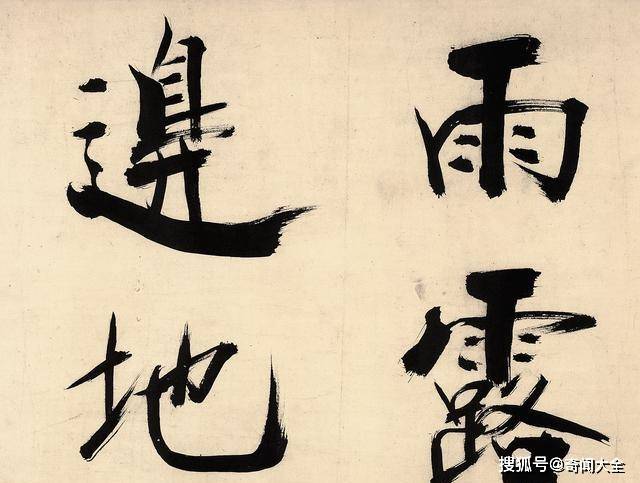 雨露
邊地
搜狐号@奇闻大全